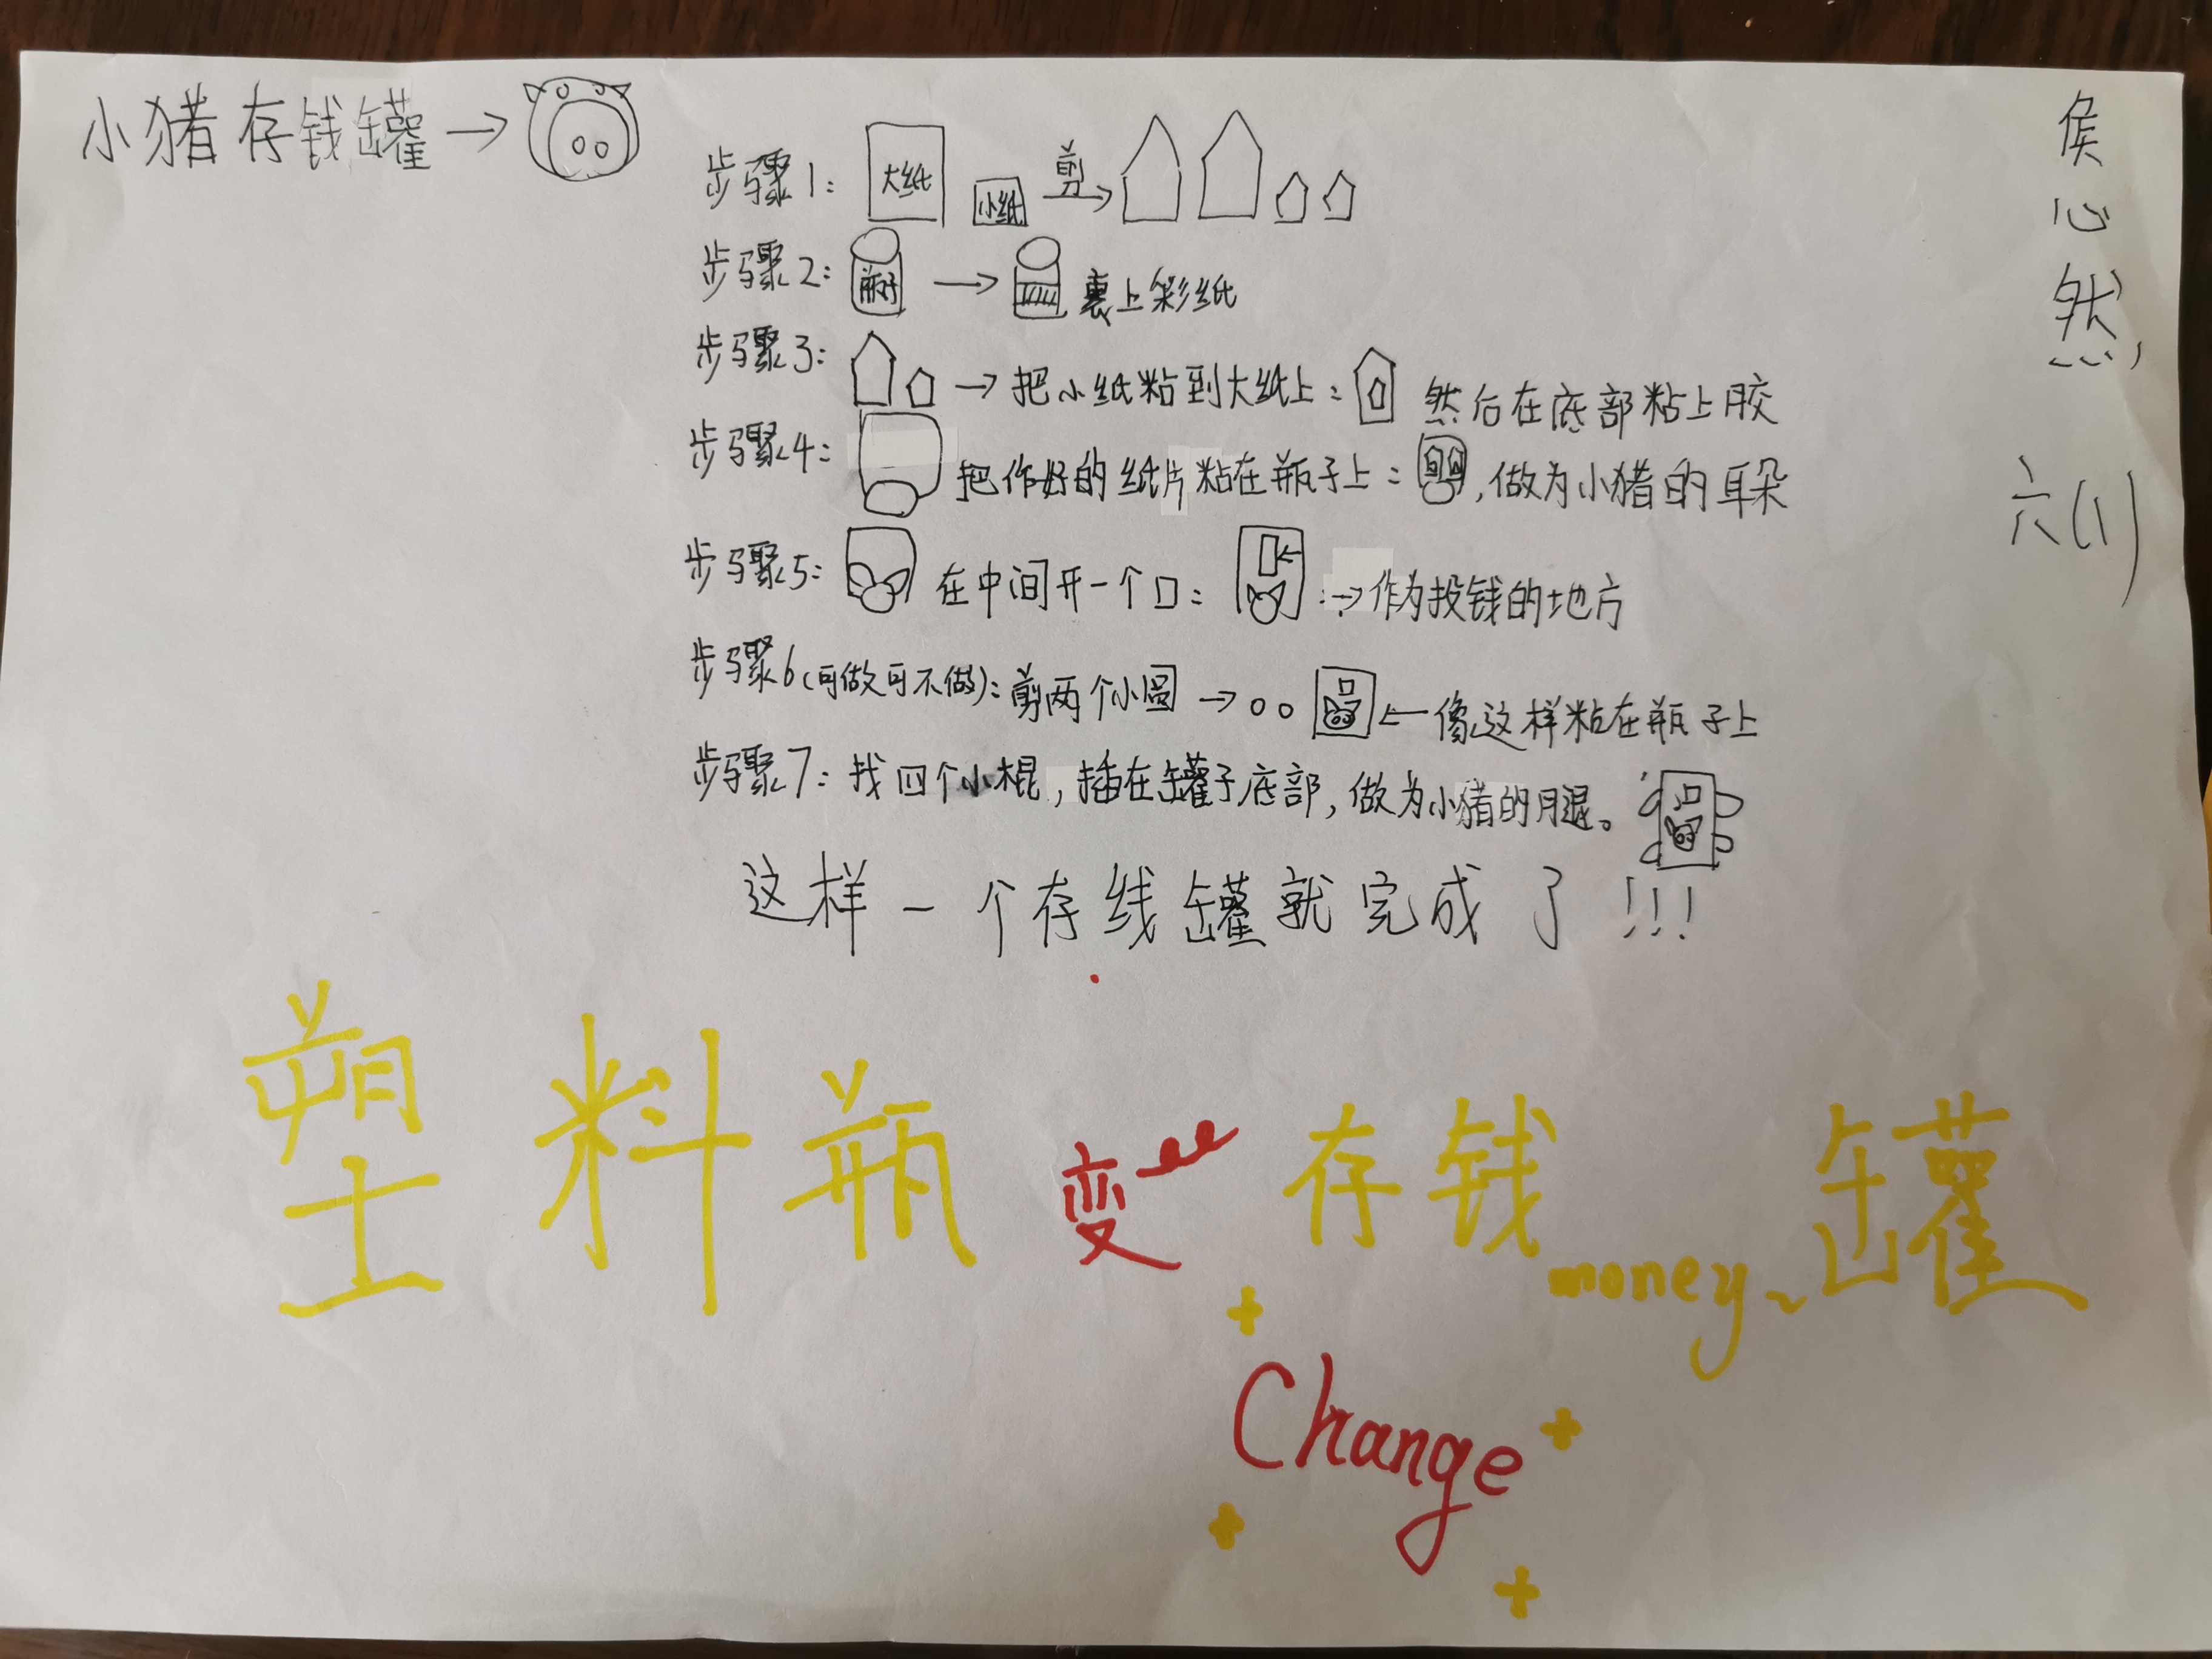 小猪存钱罐→
侯心然
六(1)
步骤1: 大纸 小纸 剪→
步骤2: 瓶子 → 裹上彩纸
步骤3: → 把小纸粘到大纸上: 然后在底部粘上胶
步骤4: 把作好的纸片粘在瓶子上: ,做为小猪的耳朵
步骤5: 在中间开一个口: :→作为投钱的地方
步骤6(可做可不做): 剪两个小圆 → ← 像这样粘在瓶子上
步骤7: 找四个小棍,插在罐子底部,做为小猪的腿。
这样一个存线罐就完成了!!!
塑料瓶变存钱money~罐
Change